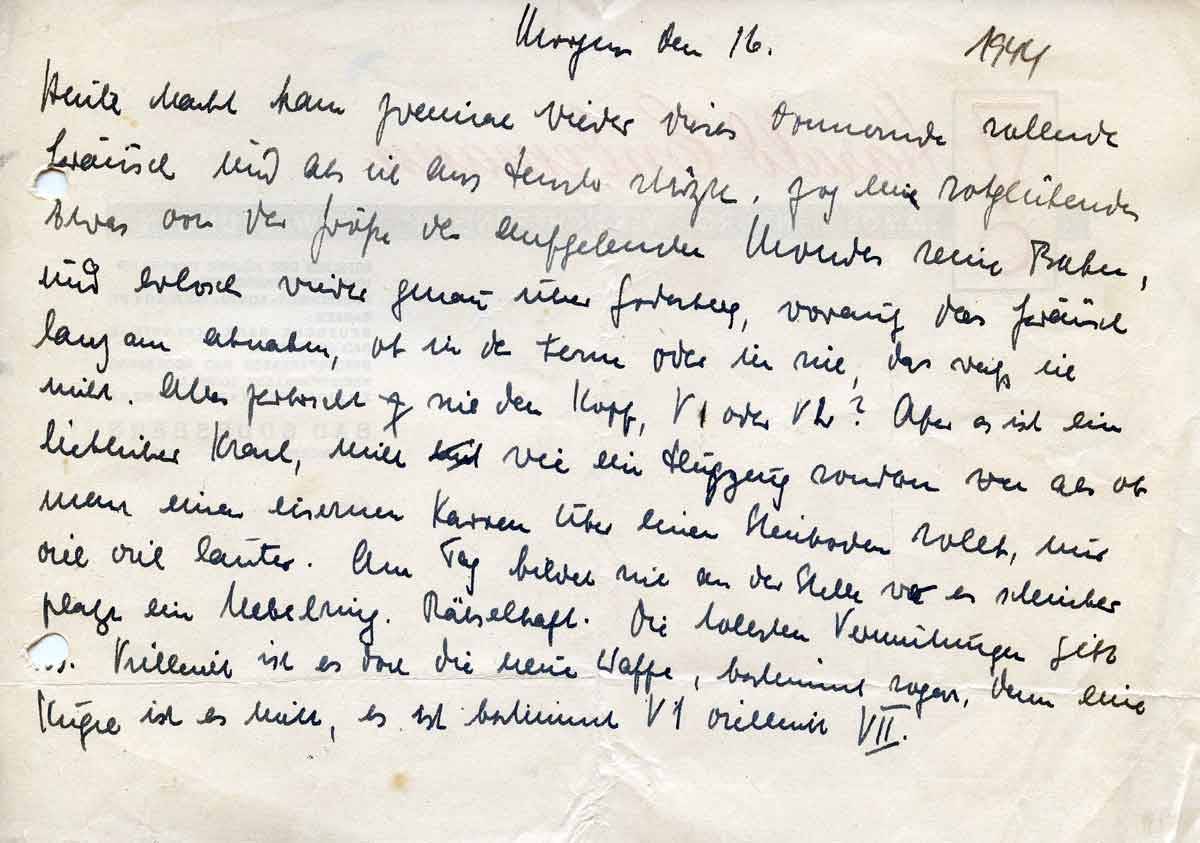 Morgen den 16.
1944
Heute Nacht kam zweimal wieder dieses donnernde rollende
Geräusch und als ich ans Fenster stürzte, zog ein rotglühendes
Etwas von der Größe des aufgehenden Mondes seine Bahn,
und erlosch wieder genau über Godesberg, worauf das Geräusch
langsam abnahm, ob in der Ferne oder in sich, das weiß ich
nicht. Alles zerbricht sich den Kopf, V1 oder V2? Aber es ist ein
Krach, nicht wie ein Flugzeug sondern wie als ob
man einen eisernen Karren über einen Steinboden rollt, nur
viel viel lauter. Am Tag bildet sich an der Stelle wo es scheinbar
platzt ein Nebelring. Rätselhaft. Die tollsten Vermutungen gibt
es. Vielleicht ist es doch die neue Waffe, bestimmt sogar, denn eine
ist es nicht, es ist bestimmt V1 vielleicht VII.